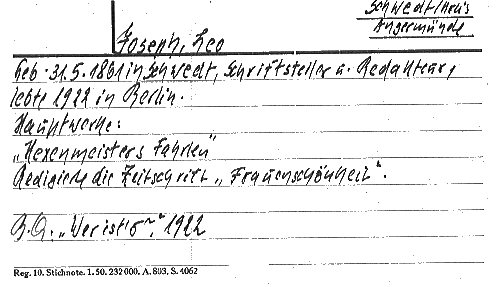 Schwedt/Krs
Angermünde
Joseph, Leo
Geb. 31.5.1861 in Schwedt, Schriftsteller u. Redakteur,
lebte 1922 in Berlin.
Hauptwerke:
„Hexenmeisters Fahrten"
Redigierte die Zeitschrift „Frauenschönheit".
„Wer ist's" 1922
Reg. 10. Stichnote. 1. 50. 232 000. A. 803, S. 4062